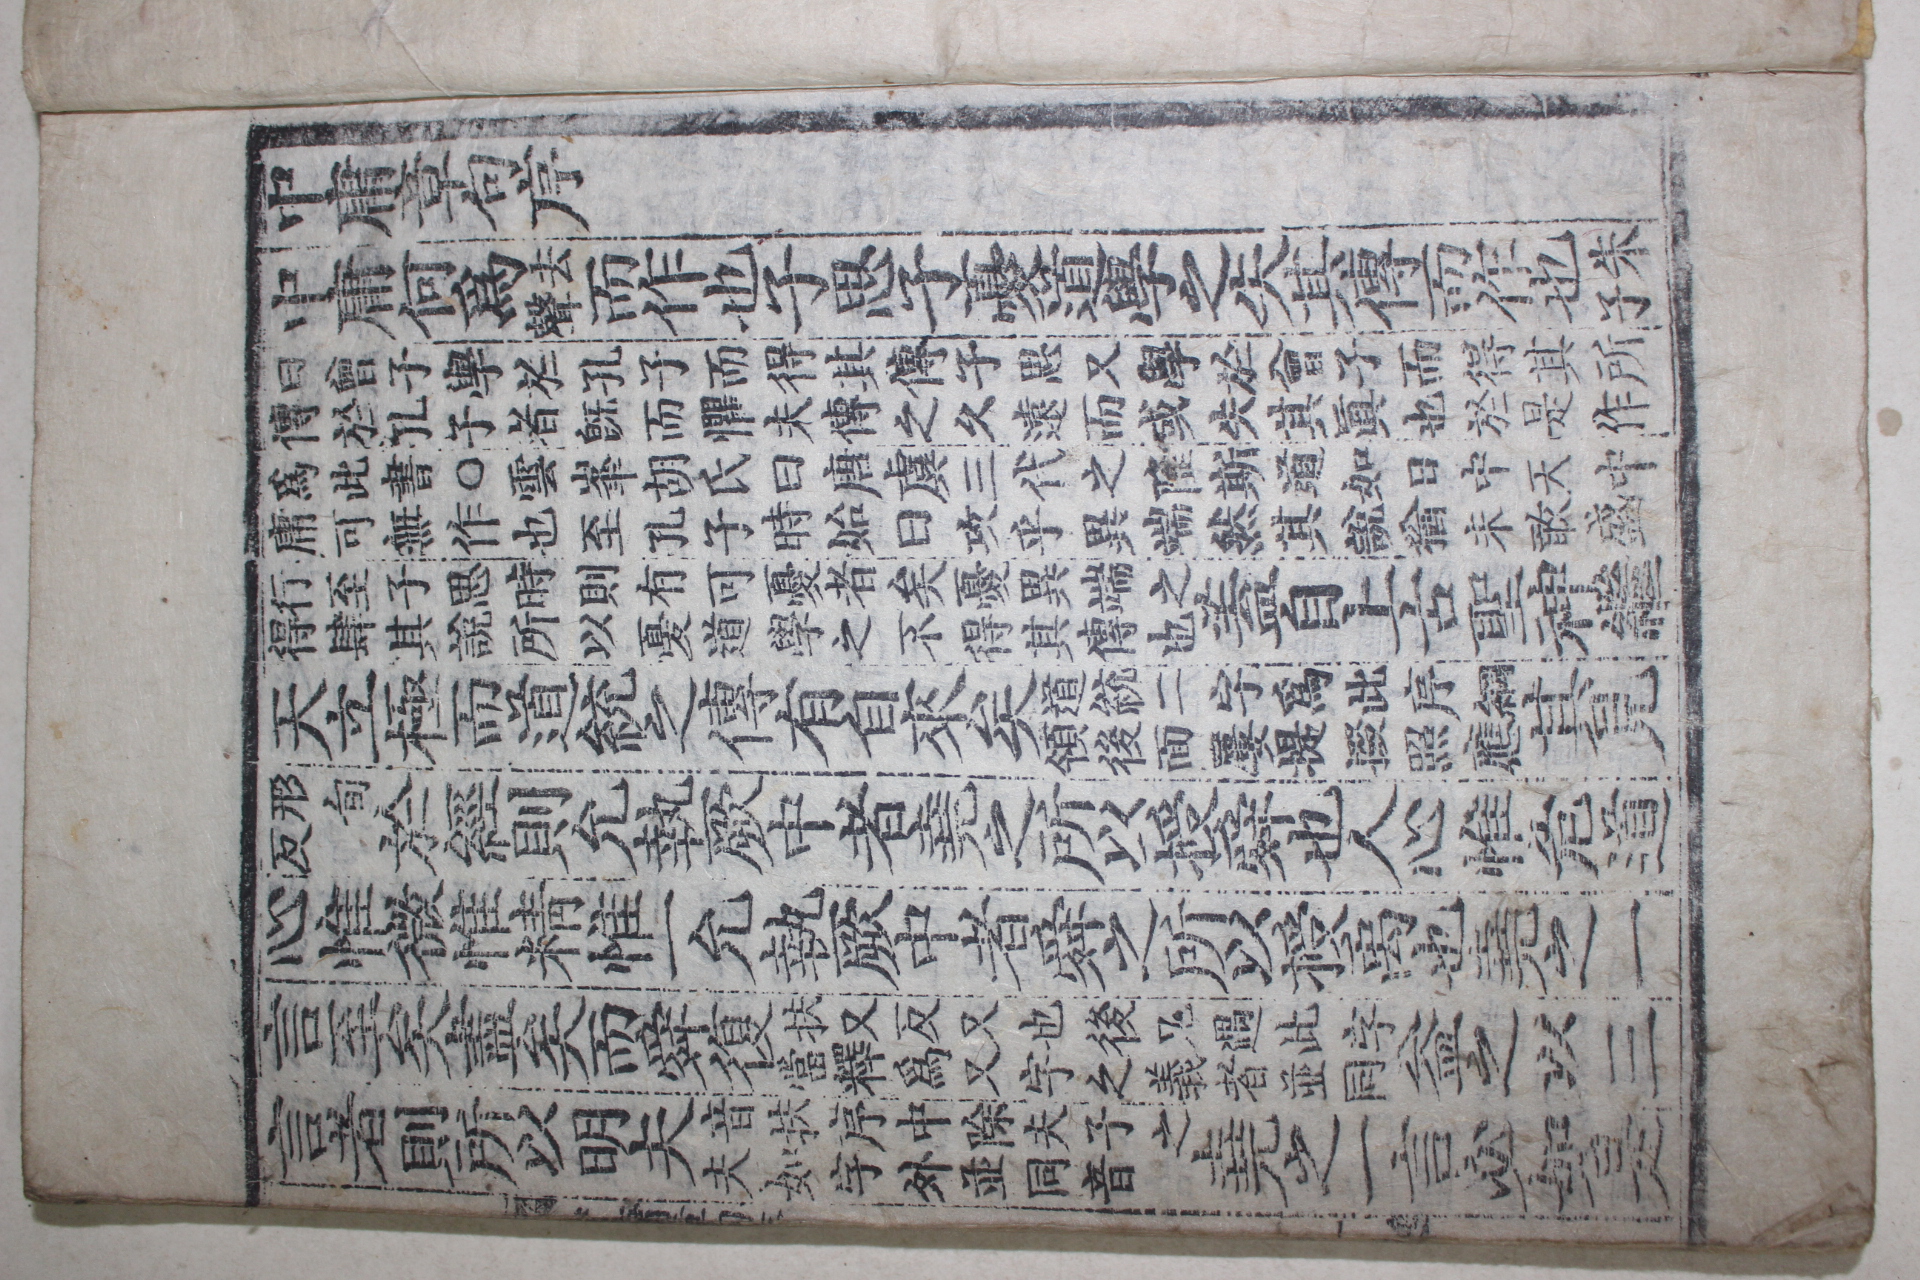 中庸章句序
中庸何爲去聲而作也子思子憂道學之失其傳而作也朱子
曰曾子學於孔子而得其傳子思又學於曾子而得其所
傳於孔子者旣而懼夫傳之久遠而或失其眞也於是作
爲此書○雲峯胡氏曰唐虞三代之隆斯道如日中天中
庸可無作也至孔子時始曰攻乎異端然其說猶未敢盛
行至子思時則有可憂者矣憂異端之
得肆其說所以憂道學之不得其傳也蓋自上古聖神繼
天立極而道統之傳有自來矣道統二字爲此序綱
領後面屢提掇照應其見
形甸
反於經則允執厥中者堯之所以授舜也人心惟危道
心惟微惟精惟一允執厥中者舜之所以授禹也堯之一
言至矣盡矣而舜復扶又反又也後凡遇此字
當釋爲又字之義者並同益之以三
言者則所以明夫音扶序中除夫子之
夫如字外並同音堯之一言必如是